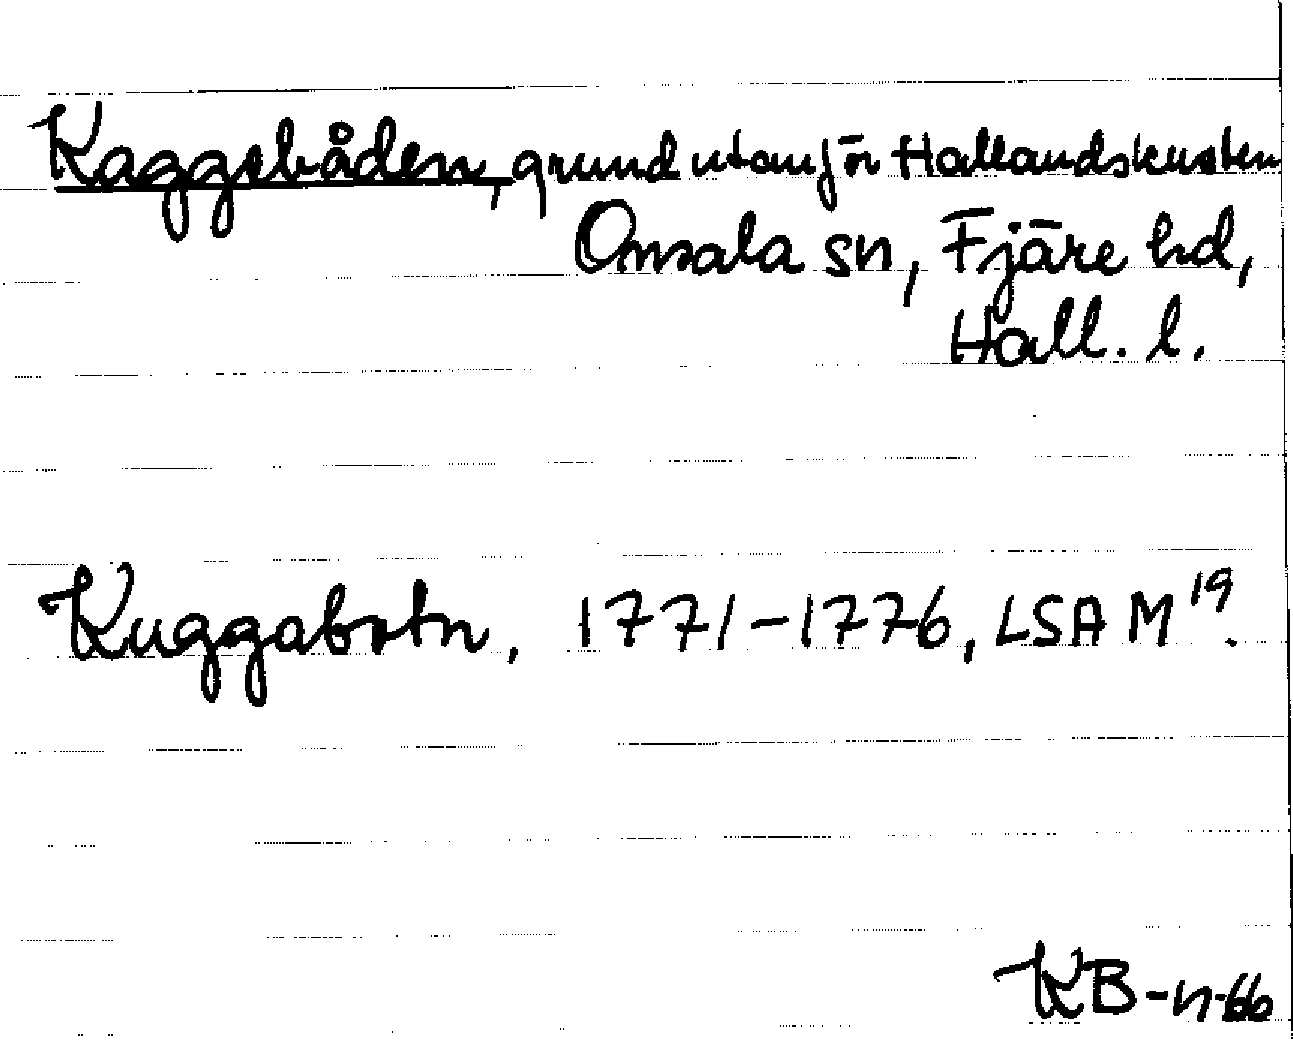 Kaggsbåden, grund utanför Hallandskusten
Onsala sn, Fjäre hd,
Hall. l.
Kuggabotn, 1771-1776, LSA M 19.
KB-n-66